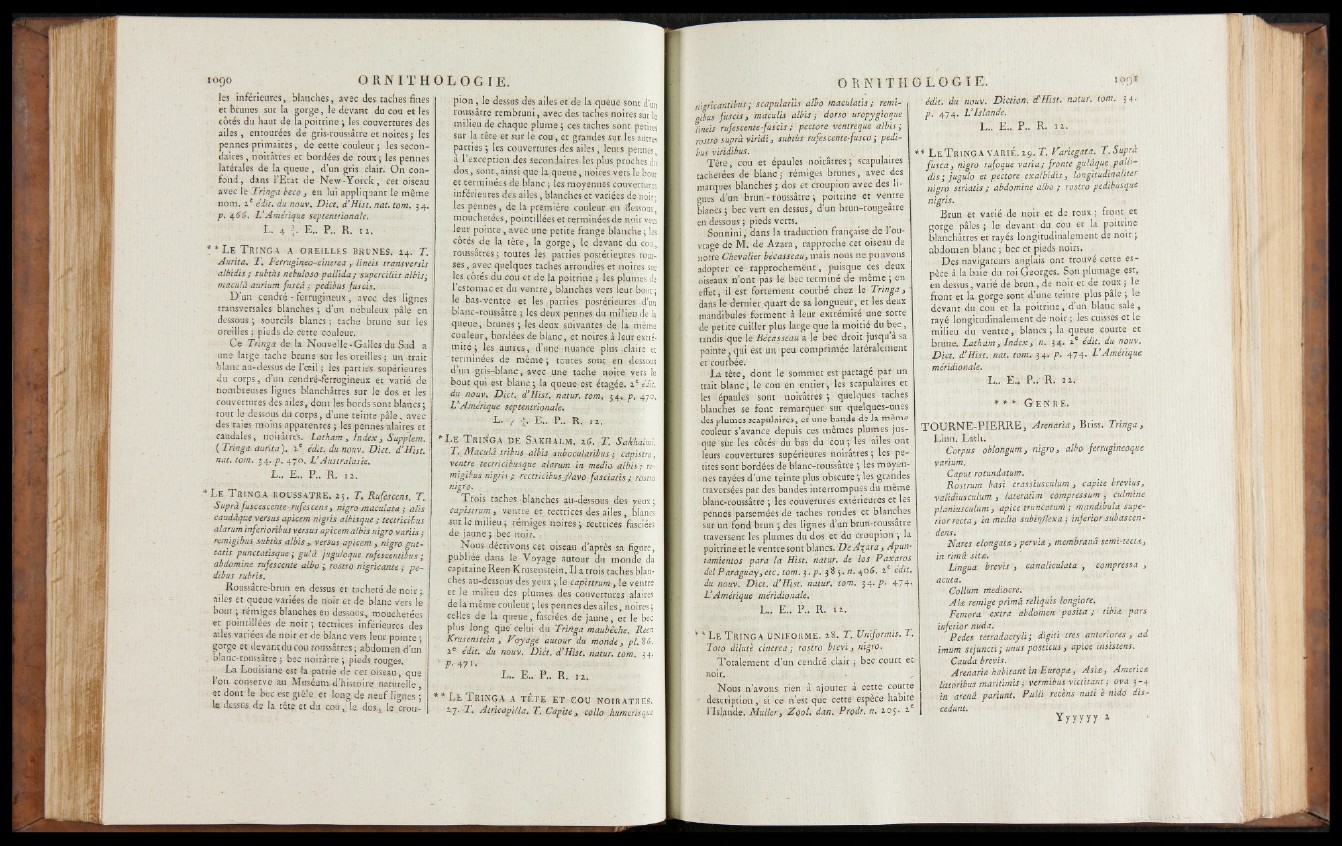 1090 ORNITHOLOGIE.
les inférieures, blanches, avec des taches fines
et brunes sur la gorge, le devant du cou et les
côtés du haut de la poitrine ; les couvertures des
ailes, entourées de gris-roussâtre et noires ; les
pennes primaires, de cette couleur ; les secon-
daires, noirâtres et bordées de roux ; les pennes
latérales de la queue, d'un gris clair. On con-
fond, dans l'Etat de New-Yorck, cet oiseau
avec le Tringa beco, en lui appliquant le même
nom. 2e édit. du nouv. Dict. d'Hist. nat. tom. 34.
p. 466. L'Amérique septentrionale.
L. 4 E.. P.. R. 12.
** LE TRINGA A OREILLES BRUNES. 24. T.
Aurita. T. Ferrugineo-cinerea, lineis transversis
albidis ; subtùs nebuloso pallida ; superciliis albis ;
maculâ aurium fuscâ ; pedibus fuscis.
D'un cendré-ferrugineux, avec des lignes
transversales blanches ; d'un nébuleux pâle en
dessous ; sourcils blancs ; tache brune sur les
oreilles ; pieds de cette couleur.
Ce Tringa de la Nouvelle-Galles du Sud a
une large tache brune sur les oreilles ; un trait
blanc au-dessus de l'œil ; les parties supérieures
du corps, d'un cendré-ferrugineux et varié de
nombreuses lignes blanchâtres sur le dos et les
couvertures des ailes, dont les bords sont blancs ;
tout le dessous du corps, d'une teinte pâle, avec
des raies moins apparentes ; les pennes alaires et
caudales, noirâtres. Latham, Index, Supplem.
(Tringa aurita). 2e édit. du nouv. Dict. d'Hist.
nat. tom. 34. p. 470. L'Australasie.
L.. E.. P.. R. 12.
* LE TRINGA ROUSSATRE. 25. T. Rufescens. T.
Suprà fuscescente-rufescens, nigro-maculata ; alis
caudâque versus apicem nigris albisque ; tectricibus
alarum inferioribus versus apicem albis nigro variis ;
remigibus subtùs albis, versus apicem, nigro gut-
tatis punctatisque ; gulâ juguloque rufescentibus ;
abdomine rufescente albo ; rostro nigricante ; pe-
dibus rubris.
Roussâtre-brun en dessus et tacheté de noir ;
ailes et queue variées de noir et de blanc vers le
bout ; rémiges blanches en dessous, mouchetées
et pointillées de noir ; tectrices inférieures des
ailes variées de noir et de blanc vers leur pointe ;
gorge et devant du cou roussâtres ; abdomen d'un
blanc-roussâtre ; bec noirâtre ; pieds rouges.
La Louisiane est la patrie de cet oiseau, que
l'on conserve au Muséum d'histoire naturelle,
et dont le bec est grêle et long de neuf lignes ;
le dessus de la tête et du cou, le dos, le crou-
pion, le dessus des ailes et de la queue sont d'un
roussâtre rembruni, avec des taches noires sur le
milieu de chaque plume ; ces taches sont petites
sur la tête et sur le cou, et grandes sur les autres
parties ; les couvertures des ailes, leurs pennes,
à l'exception des secondaires les plus proches du
dos, sont, ainsi que la queue, noires vers le bout
et terminées de blanc ; les moyennes couvertures
inférieures des ailes, blanches et variées de noir ;
les pennes, de la première couleur en dessous,
mouchetées, pointillées et terminées de noir vers
leur pointe, avec une petite frange blanche ; les
côtés de la tête, la gorge, le devant du cou,
roussâtres ; toutes les parties postérieures rous-
ses, avec quelques taches arrondies et noires sur
les côtés du cou et de la poitrine ; les plumes de
l'estomac et du ventre, blanches vers leur bout ;
le bas-ventre et les parties postérieures d'un
blanc-roussâtre ; les deux pennes du milieu de la
queue, brunes ; les deux suivantes de la même
couleur, bordées de blanc, et noires à leur extré-
mité ; les autres, d'une nuance plus claire et
terminées de même ; toutes sont en dessous
d'un gris-blanc, avec une tache noire vers le
bout qui est blanc ; la queue est étagée. 2e édit.
du nouv. Dict. d'Hist. natur. tom. 34. p. 470.
L'Amérique septentrionale.
L. E.. P.. R. 12.
* LE TRINGA DE SAKHALM. 26. T. Sakhalmi.
T. Maculâ tribus albis subocularibus ; capistro,
ventre tectricibusque alarum in medio albis ; re-
migibus nigris ; rectricibus flavo fasciatis ; rostro
nigro.
Trois taches blanches au-dessous des yeux ;
capistrum, ventre et tectrices des ailes, blancs
sur le milieu ; rémiges noires ; rectrices fasciées
de jaune ; bec noir.
Nous décrivons cet oiseau d'après sa figure,
publiée dans le Voyage autour du monde du
capitaine Reen Krusenstein. Il a trois taches blan-
ches au-dessous des yeux ; le capistrum, le ventre
et le milieu des plumes des couvertures alaires
de la même couleur ; les pennes des ailes, noires ;
celles de la queue, fasciées de jaune, et le bec
plus long que celui du Tringa maubèche. Reen
Krusenstein, Voyage autour du monde, pl. 86.
2e édit. du nouv. Dict. d'Hist. natur. tom. 34.
p. 471.
L.. E.. P.. R. 12.
** LE TRINGA A TÊTE ET COU NOIRATRES.
27. T. Atricapilla. T. Capite, collo humerisque
ORNITHOLOGIE. 1091
nigricantibus ; scapulariis albo maculatis ; remi-
gibus fuscis, maculis albis ; dorso uropygioque
lineis rufescente-fuscis ; pectore ventreque albis ;
rostro suprà viridi, subtùs rufescente-fusco ; pedi-
bus viridibus.
Tête, cou et épaules noirâtres ; scapulaires
tachetées de blanc ; rémiges brunes, avec des
marques blanches ; dos et croupion avec des li-
gnes d'un brun-roussâtre ; poitrine et ventre
blancs ; bec vert en dessus, d'un brun-rougeâtre
en dessous ; pieds verts.
Sonnini, dans la traduction française de l'ou-
vrage de M. de Azara, rapproche cet oiseau de
notre Chevalier bécasseau, mais nous ne pouvons
adopter ce rapprochement, puisque ces deux
oiseaux n'ont pas le bec terminé de même ; en
effet, il est fortement courbé chez le Tringa,
dans le dernier quart de sa longueur, et les deux
mandibules forment à leur extrémité une sorte
de petite cuiller plus large que la moitié du bec,
tandis que le Bécasseau a le bec droit jusqu'à sa
pointe, qui est un peu comprimée latéralement
et courbée.
La tête, dont le sommet est partagé par un
trait blanc, le cou en entier, les scapulaires et
les épaules sont noirâtres ; quelques taches
blanches se font remarquer sur quelques-unes
des plumes scapulaires, et une bande de la même
couleur s'avance depuis ces mêmes plumes jus-
que sur les côtés du bas du cou ; les ailes ont
leurs couvertures supérieures noirâtres ; les pe-
tites sont bordées de blanc-roussâtre ; les moyen-
nes rayées d'une teinte plus obscure ; les grandes
traversées par des bandes interrompues du même
blanc-roussâtre ; les couvertures extérieures et les
pennes parsemées de taches rondes et blanches
sur un fond brun ; des lignes d'un brun-roussâtre
traversent les plumes du dos et du croupion ; la
poitrine et le ventre sont blancs. De Azara, Apun-
tamientos para la Hist. natur. de los Paxaros
del Paraguay, etc. tom. 3. p. 385. n. 406. 2e édit.
du nouv. Dict. d'Hist. natur. tom. 34. p. 474.
L'Amérique méridionale.
L.. E.. P.. R. 12.
** LE TRINGA UNIFORME. 28. T. Uniformis. T.
Toto dilutè cinerea ; rostro brevi, nigro.
Totalement d'un cendré clair ; bec court et
noir.
Nous n'avons rien à ajouter à cette courte
description, si ce n'est que cette espèce habite
l'Islande. Muller, Zool. dan. Prodr. n. 205. 2e
édit. du nouv. Diction. d'Hist. natur. tom. 34.
p. 474. L'Islande.
L.. E.. P.. R. 12.
** LE TRINGA VARIÉ. 29. T. Variegata. T. Suprà
fusca, nigro rufoque varia ; fronte gulâque palli-
dis ; jugulo et pectore exalbidis, longitudinaliter
nigro striatis ; abdomine albo ; rostro pedibusque
nigris.
Brun et varié de noir et de roux ; front et
gorge pâles ; le devant du cou et la poitrine
blanchâtres et rayés longitudinalement de noir ;
abdomen blanc ; bec et pieds noirs.
Des navigateurs anglais ont trouvé cette es-
pèce à la baie du roi Georges. Son plumage est,
en dessus, varié de brun, de noir et de roux ; le
front et la gorge sont d'une teinte plus pâle ; le
devant du cou et la poitrine, d'un blanc sale,
rayé longitudinalement de noir ; les cuisses et le
milieu du ventre, blancs ; la queue courte et
brune. Latham, Index, n. 34. 2e édit. du nouv.
Dict. d'Hist. nat. tom. 34. p. 474. L'Amérique
méridionale.
L.. E.. P.. R. 12.
*** GENRE.
TOURNE-PIERRE, Arenaria, Briss. Tringa,
Linn. Lath.
Corpus oblongum, nigro, albo ferrugineoque
varium.
Caput rotundatum.
Rostrum basi crassiusculum, capite brevius,
validiusculum, lateratìm compressum ; culmine
planiusculum, apice truncatum ; mandibula supe-
rior recta, in medio subinflexa ; inferior subascen-
dens.
Nares elongatæ, perviæ, membranâ semi-tectæ,
in rimâ sitæ.
Lingua brevis, canaliculata, compressa,
acuta.
Collum mediocre.
Alæ remige primâ reliquis longiore.
Femora extra abdomen posita ; tibiæ pars
inferior nuda.
Pedes tetradactyli ; digiti tres anteriores, ad
imum sejuncti ; unus posticus, apice insistens.
Cauda brevis.
Arenariæ habitant in Europæ, Asiæ, Americæ
littoribus maritimis ; vermibus victitant ; ova 3-4
in arenâ pariunt. Pulli recèns nati è nido dis-
cedunt.
Yyyyyy 2